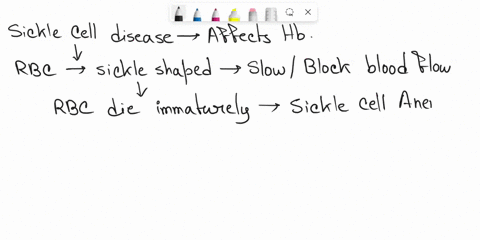 Sickle cell disease → Affects Hb.
↓
RBC → sickle shaped → Slow/Block blood flow
↓
RBC die immaturely → Sickle cell Aner